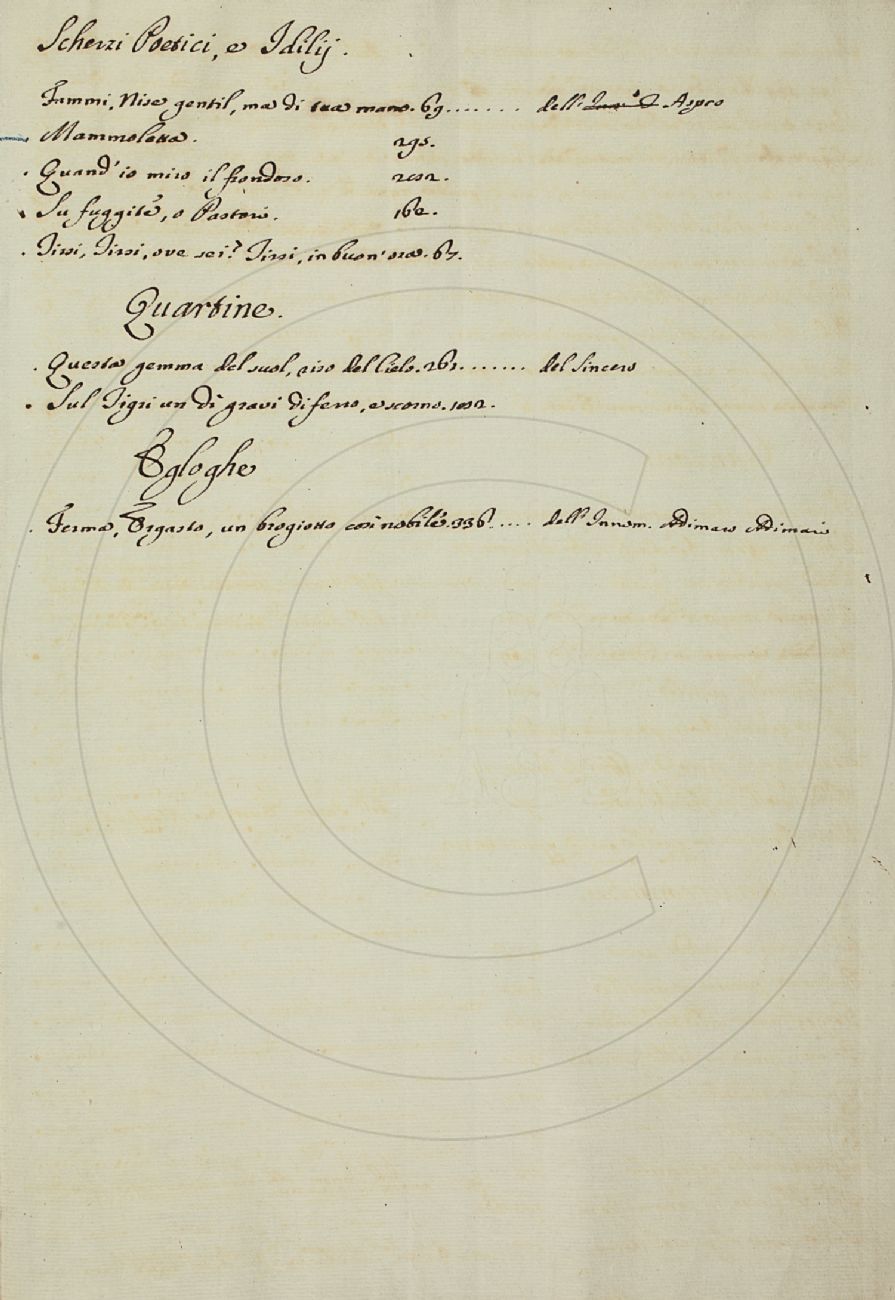 Scherzi Poetici, e Idilij.
Fammi, Nise gentil, ma di tua mano. 69....... dell' Aspro
Mammoletta. 295.
Quand' io miro il frondoso. 202.
Su fuggite, o Pastori. 162.
Tirsi, Tirsi, ove sei? Tirsi, in buon' ora. 67.
Quartine.
Questa gemma del suol, riso del Cielo. 261....... del Sincero
Sul Tigri un dì gravi di ferro, e scorno. 102.
Egloghe
Ferma, Ergasto, un brogiotto così nobile. 336..... dell' Innom. Adimaro Adimari